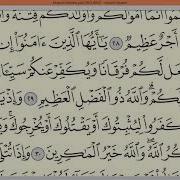 أَنَّمَآ أَمْوَٰلُكُمْ وَأَوْلَٰدُكُمْ
أَجْرٌ عَظِيمٌ ٢٨ يَٰٓأَيُّهَا ٱلَّذِينَ ءَامَنُوٓا۟ إِن
لَّكُمْ فُرْقَانًا وَيُكَفِّرْ عَنكُمْ
وَٱللَّهُ ذُو ٱلْفَضْلِ ٱلْعَظِيمِ ٢٩ وَإِذْ
كَفَرُوا۟ لِيُثْبِتُوكَ أَوْ يَقْتُلُوكَ أَوْ يُخْرِجُوكَ
ٱللَّهُ وَٱللَّهُ خَيْرُ ٱلْمَٰكِرِينَ ٣٠ وَإِذَا